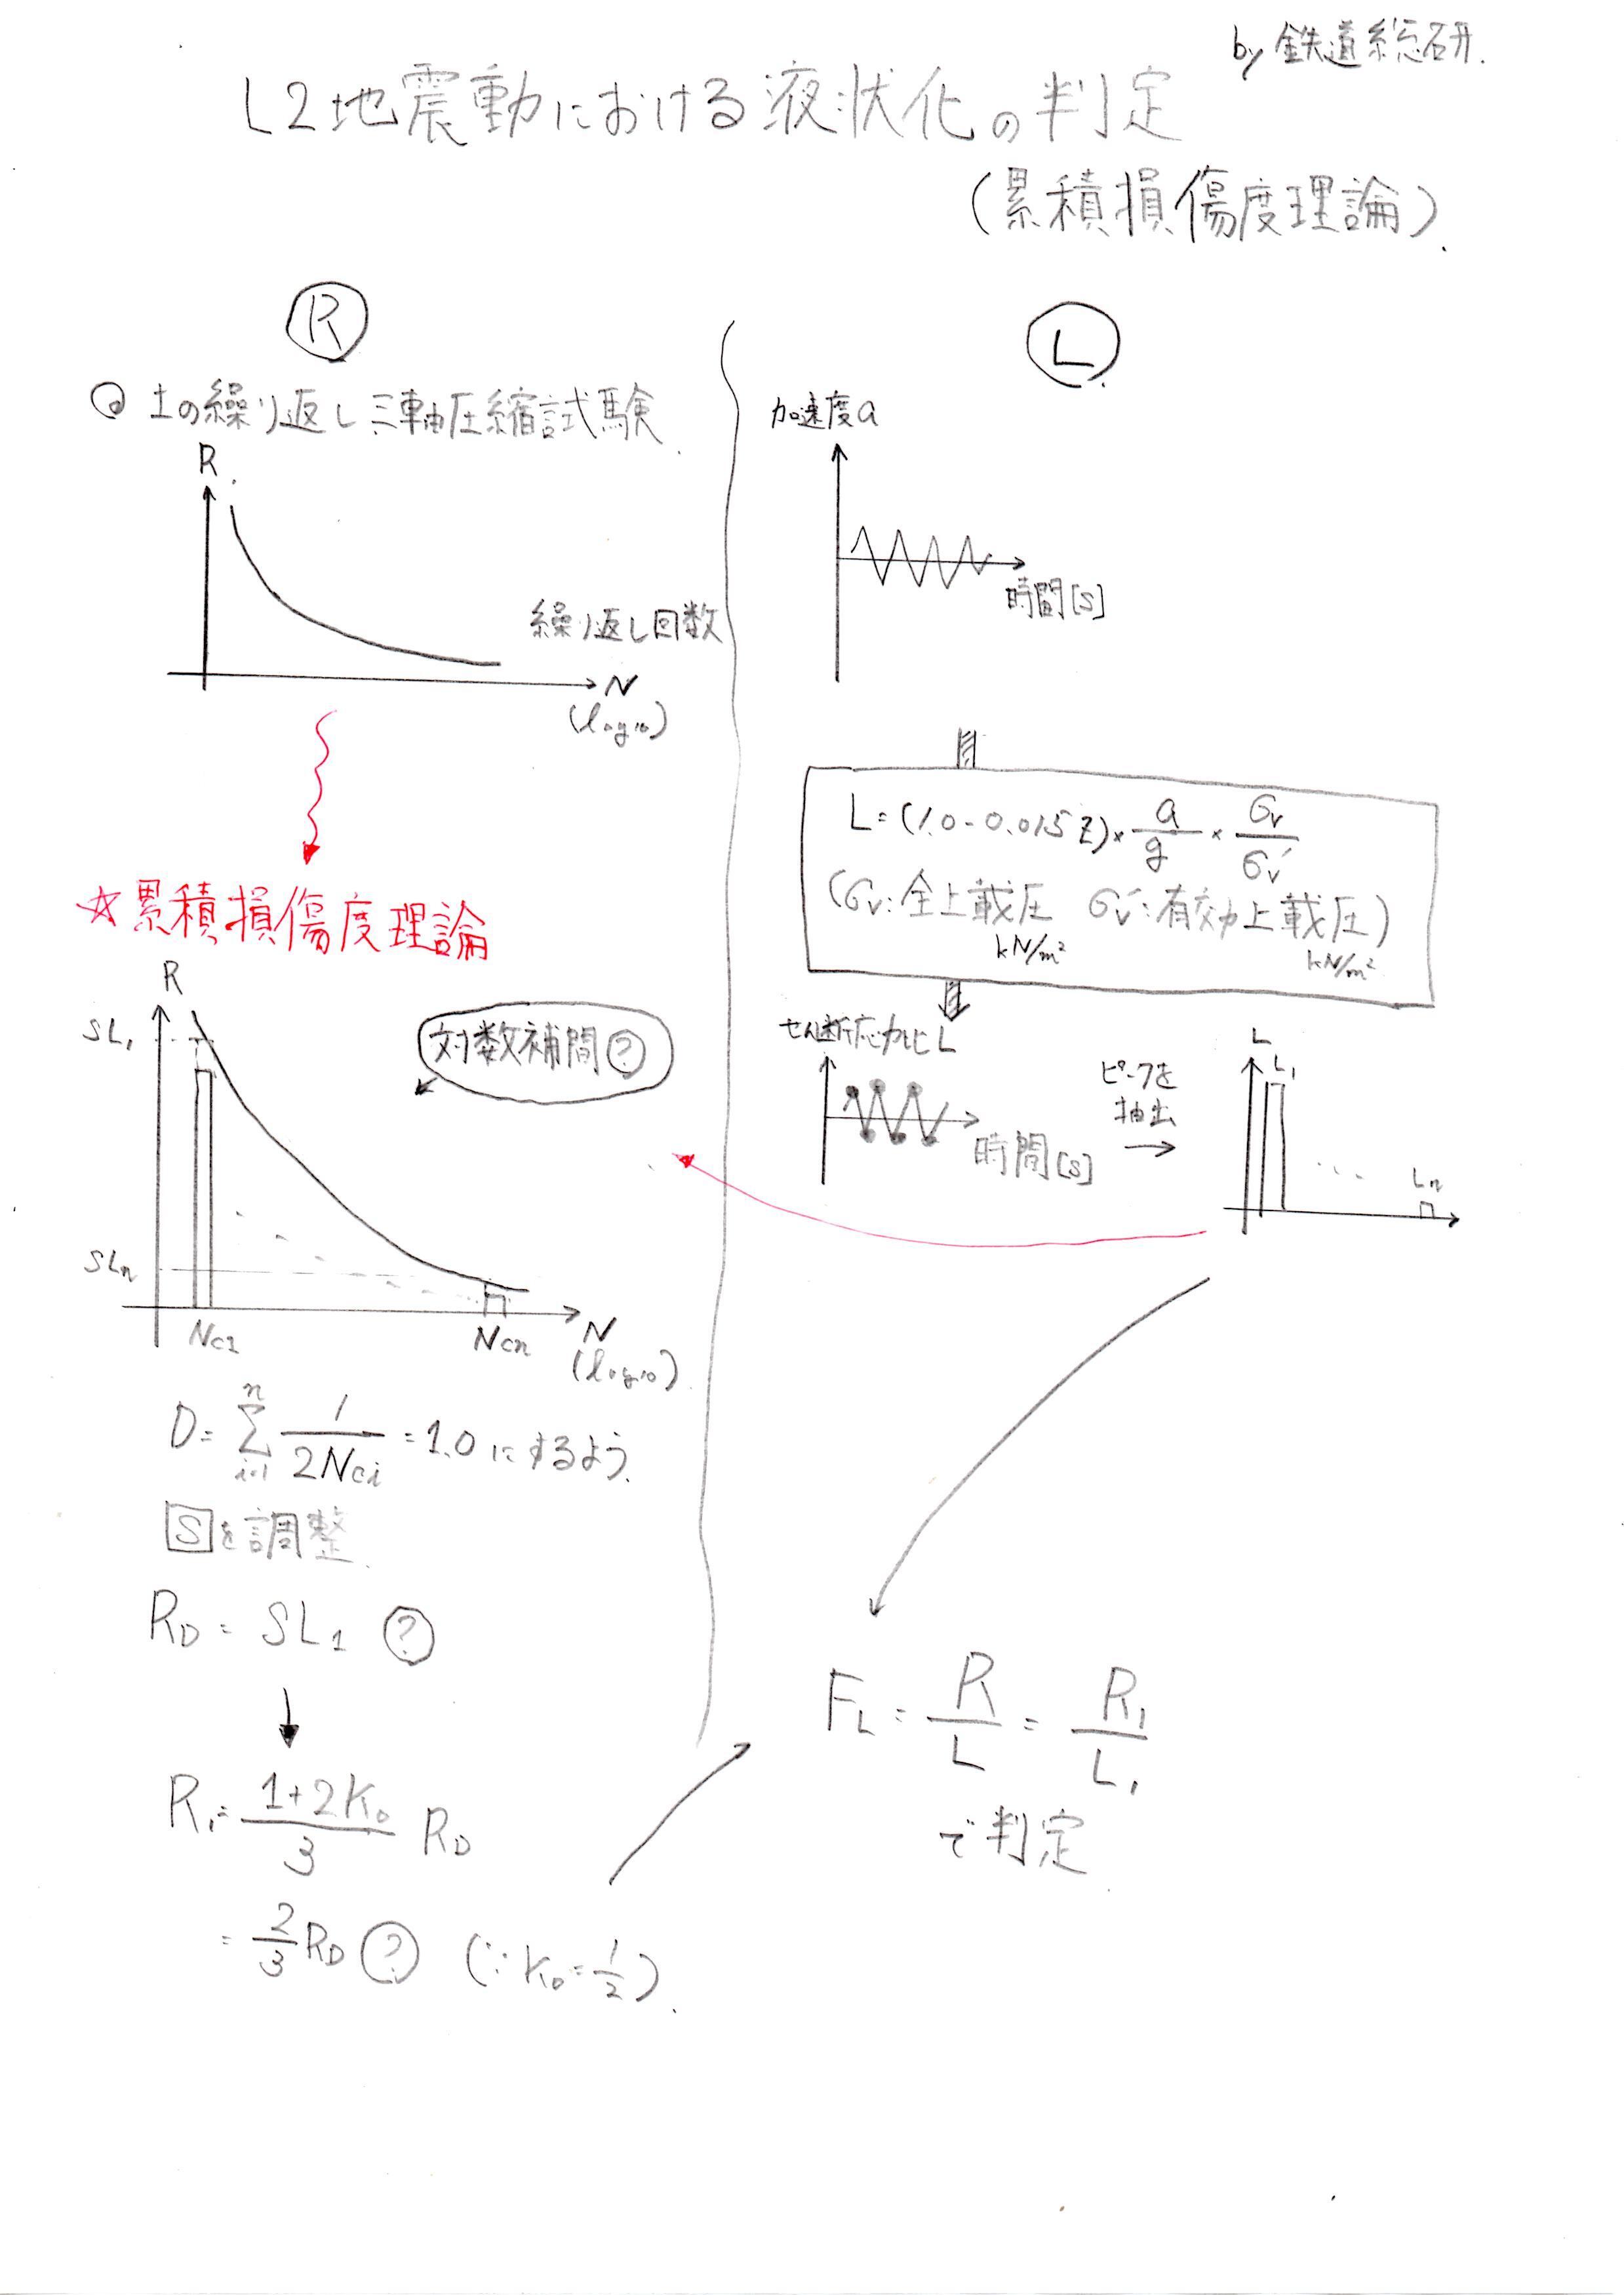 by 鉄道総研.
L2地震動における液状化の判定
(累積損傷度理論).
R
@ 土の繰り返し三軸圧縮試験
R
繰り返し回数
N
(log10)
☆累積損傷度理論
R
SL1
対数補間?
SLn
Nc1
Ncn
N
(log10)
D = Σ[i=1→n] 1/(2Nci) = 1.0 にするよう.
Sを調整.
RD = SL1 ?
R1 = (1+2K0)/3 RD
= 2/3 RD ? (∵ K0 = 1/2).
L
加速度a
時間[S]
L = (1.0 - 0.015Z) × a/g × σv/σv'
(σv: 全上載圧 σv': 有効上載圧)
kN/m² kN/m²
せん断応力比 L
時間[S]
ピークを
抽出
→
L
L1
Ln
FL = R/L = R1/L1
で判定